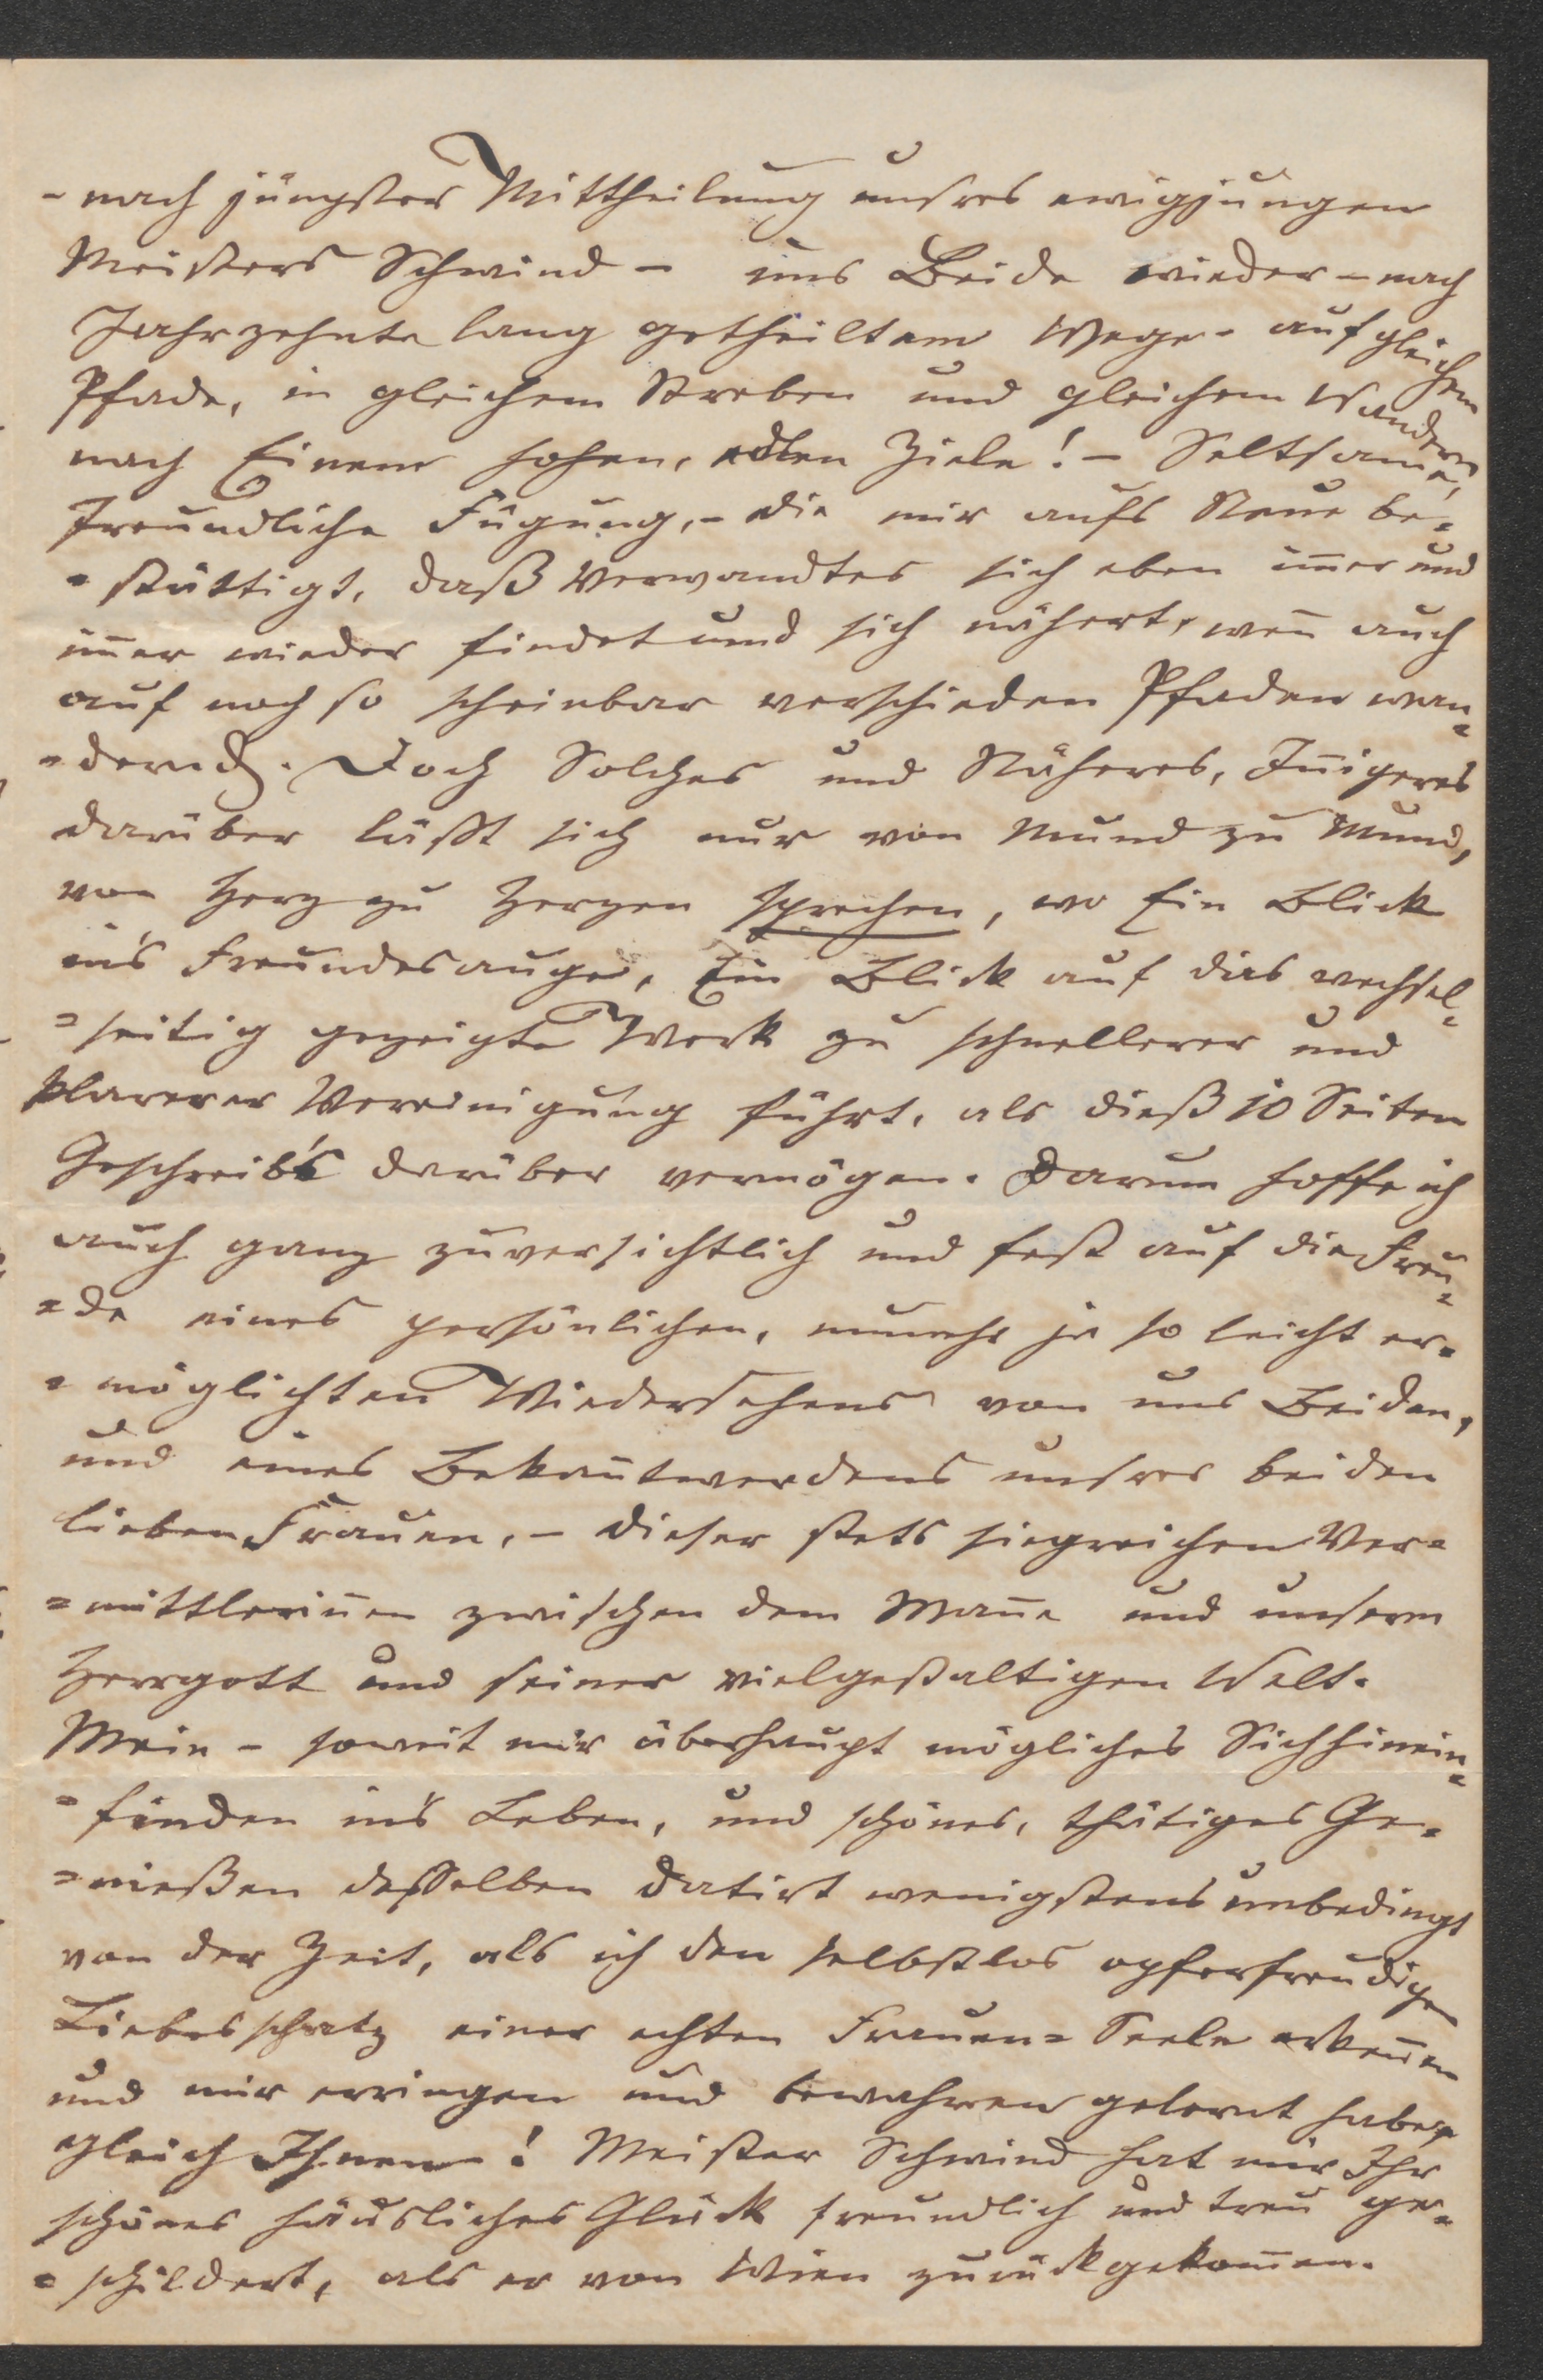 - nach jüngster Mittheilung unsres ewigjungen
Meisters Schwind - uns Beide wieder - nach
Jahrzehnte lang getheiltem Wege - auf gleichem
Pfade, in gleichem Streben und gleichem Wandern
nach Einem hohen, edlen Ziele! - Seltsame,
freundliche Fügung, - die mir aufs Neue be-
=stättigt, daß Verwandtes sich eben im̄er und
im̄er wieder findet und sich nähert, wen̄ auch
auf noch so scheinbar verschieden Pfaden wan=
=dernd. Doch Solches und Näheres, In̄igeres
darüber läßt sich nur von Mund zu Mund,
von Herz zu Herzen sprechen, wo Ein Blick
in's Freundesauge, Ein Blick auf das wechsel=
=seitig gezeigte Werk zu schnellerer und
klarerer Vereinigung führt, als dieß 10 Seiten
Geschreib's darüber vermögen. Darum hoffe ich
auch ganz zuversichtlich und fest auf die Freu=
=de eines persönlichen, nunmehr ja so leicht er=
=möglichten Wiedersehens von uns Beiden,
und eines Bekan̄twerdens unsrer beiden
lieben Frauen, - dieser stets siegreichen Ver=
=mittlerin̄en zwischen dem Man̄e und unserm
Herrgott und seiner vielgestaltigen Welt.
Mein - soweit mir überhaupt mögliches Sichhinein=
=finden in's Leben, und schönes, thätiges Ge=
=nießen desselben datirt wenigstens unbedingt
von der Zeit, als ich den selbstlos opferfreudigen
Liebesschatz einer echten Frauen=Seele erken̄en
und mir erringen und bewahren gelernt habe,
gleich Ihnen - ! Meister Schwind hat mir Ihr
schönes häusliches Glück freundlich und treu ge=
=schildert, als er von Wien zurückgekom̄en.